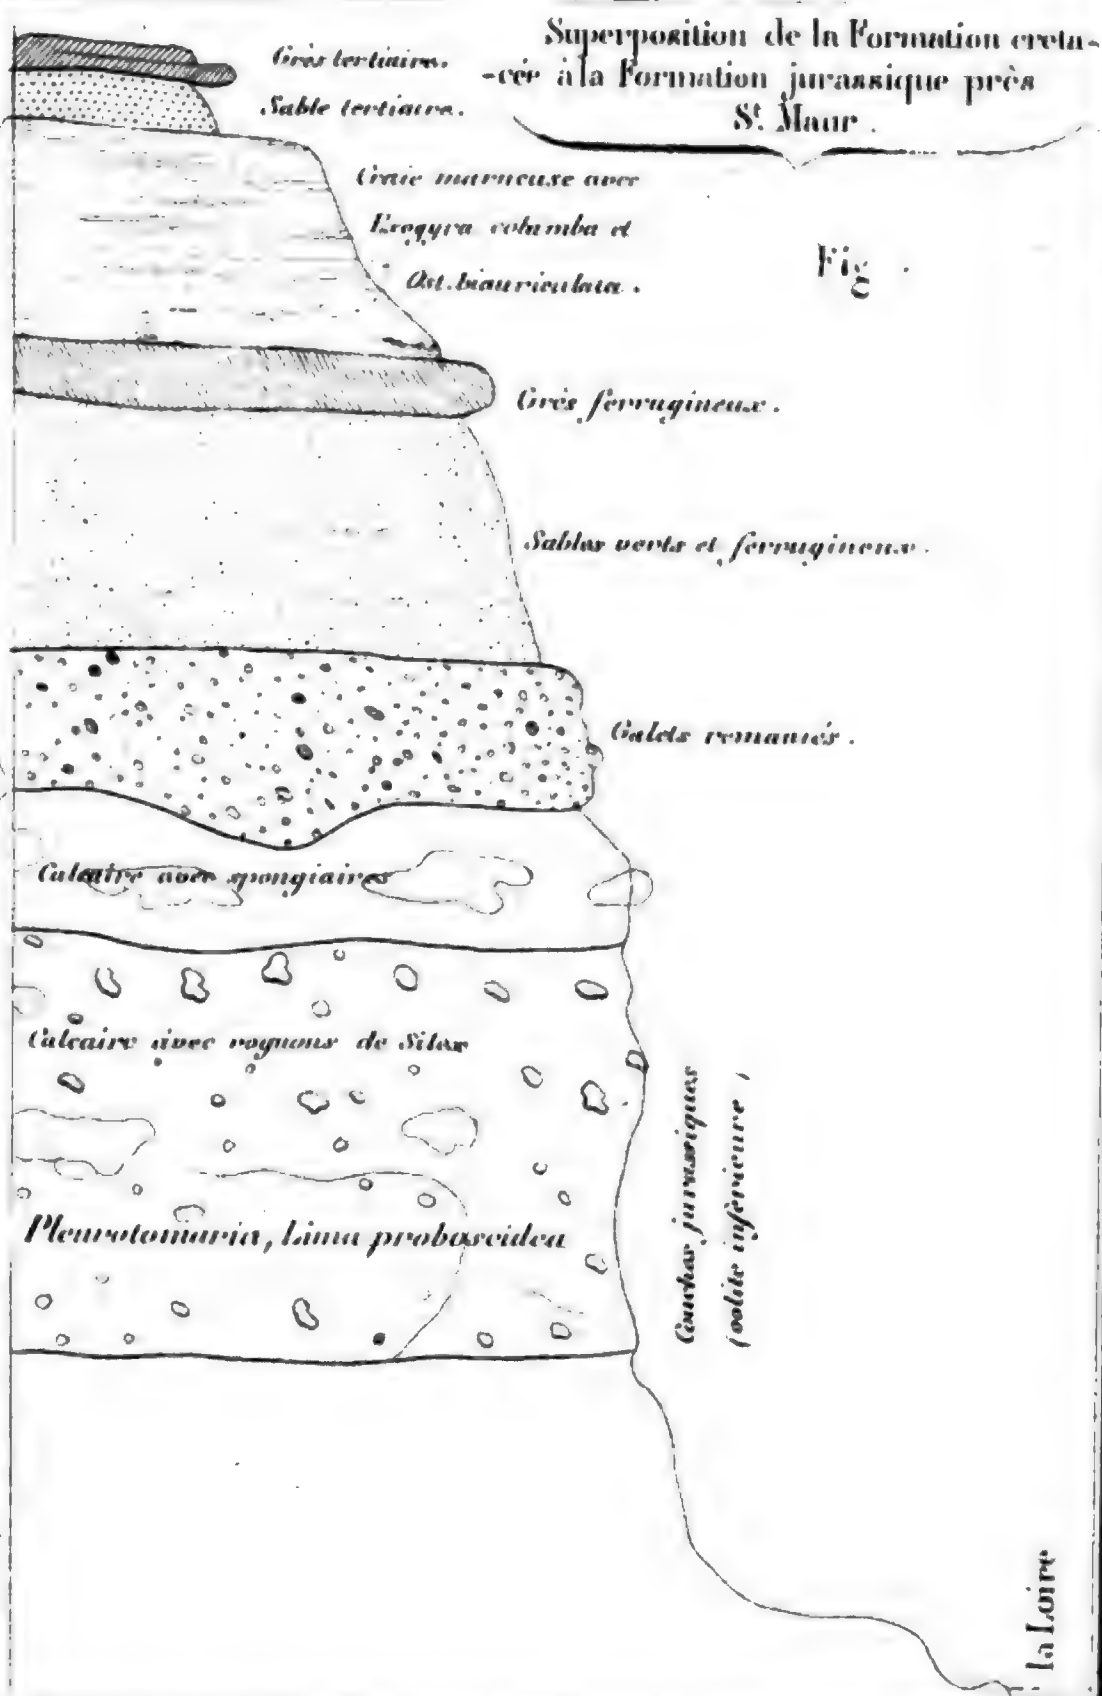 Superposition de la Formation creta-
-cée à la Formation jurassique près
St. Maur.
Grès tertiaire.
Sable tertiaire.
Craie marneuse avec
Exogyra columba et
Ost. biauriculata.
Fig.
Grès ferrugineux.
Sables verts et ferrugineux.
Galets remaniés.
Calcaire avec spongiaires
Calcaire avec rognons de Silex
Pleurotomaria, Lima proboscidea
Couches jurassiques
(oolite inférieure)
la Loire